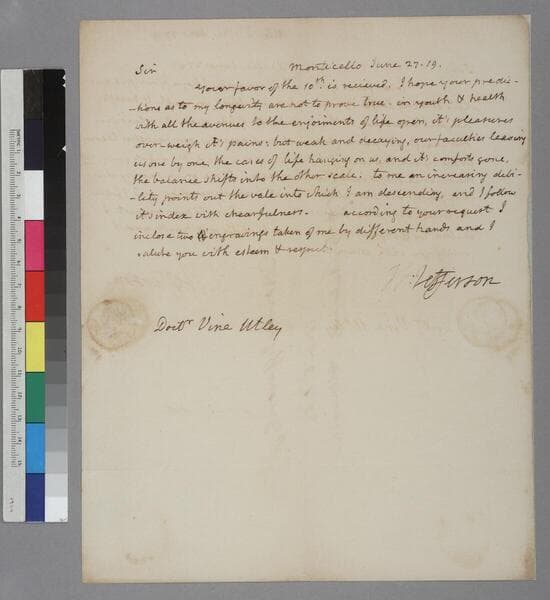 Sir
Monticello June 27. 19.
Your favor of the 10th is recieved. I hope your predic-
-tions as to my longevity are not to prove true. in youth & health
with all the avenues to the enjoiments of life open, it's pleasures
over-weigh it's pains: but weak and decaying, our faculties leaving
us one by one, the cares of life hanging on us, and it's comforts gone,
the balance shifts into the other scale. to me an increasing debi-
-lity points out the vale into which I am descending, and I follow
it's index with chearfulness. according to your request I
inclose two engravings taken of me by different hands and I
salute you with esteem & respect.
Th: Jefferson
Doctr. Vine Utley